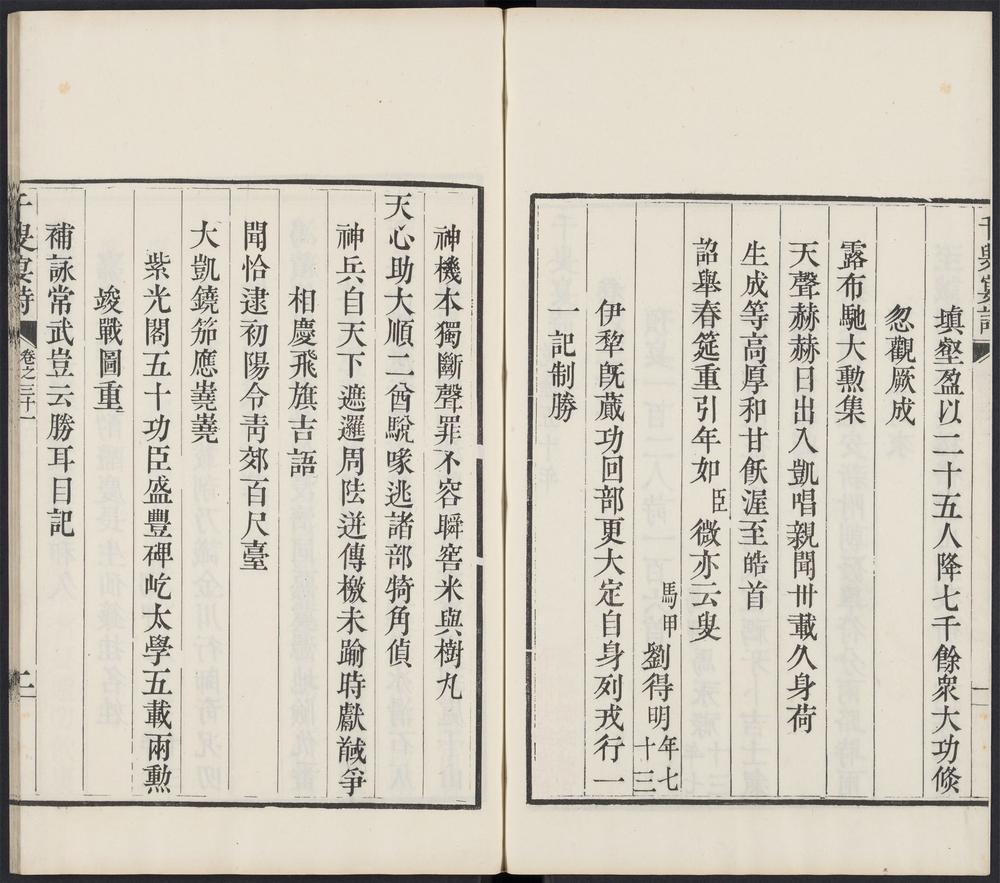 千叟宴詩
填壑盈以二十五人降七千餘衆大功倐
忽觀厥成
露布馳大勲集
天聲赫赫日出入凱唱親聞丗載久身荷
生成等高厚和甘飫渥至皓首
詔舉春筵重引年如臣微亦云叟
馬甲劉得明年七十三
伊犂旣蕆功回部更大定自身列戎行一
一記制勝
神機本獨斷聲罪不容瞬窖米與樹丸
天心助大順二酋駾喙逃諸部犄角偵
神兵自天下遮邏周阹迸傳檄未踰時獻馘爭
相慶飛旗吉語
聞恰逮初陽令靑郊百尺臺
大凱鐃笳應嶤嶤
紫光閣五十功臣盛豐碑屹太學五載兩勲
竣戰圖重
補詠常武豈云勝耳目記
千叟宴詩
卷之三十一
二